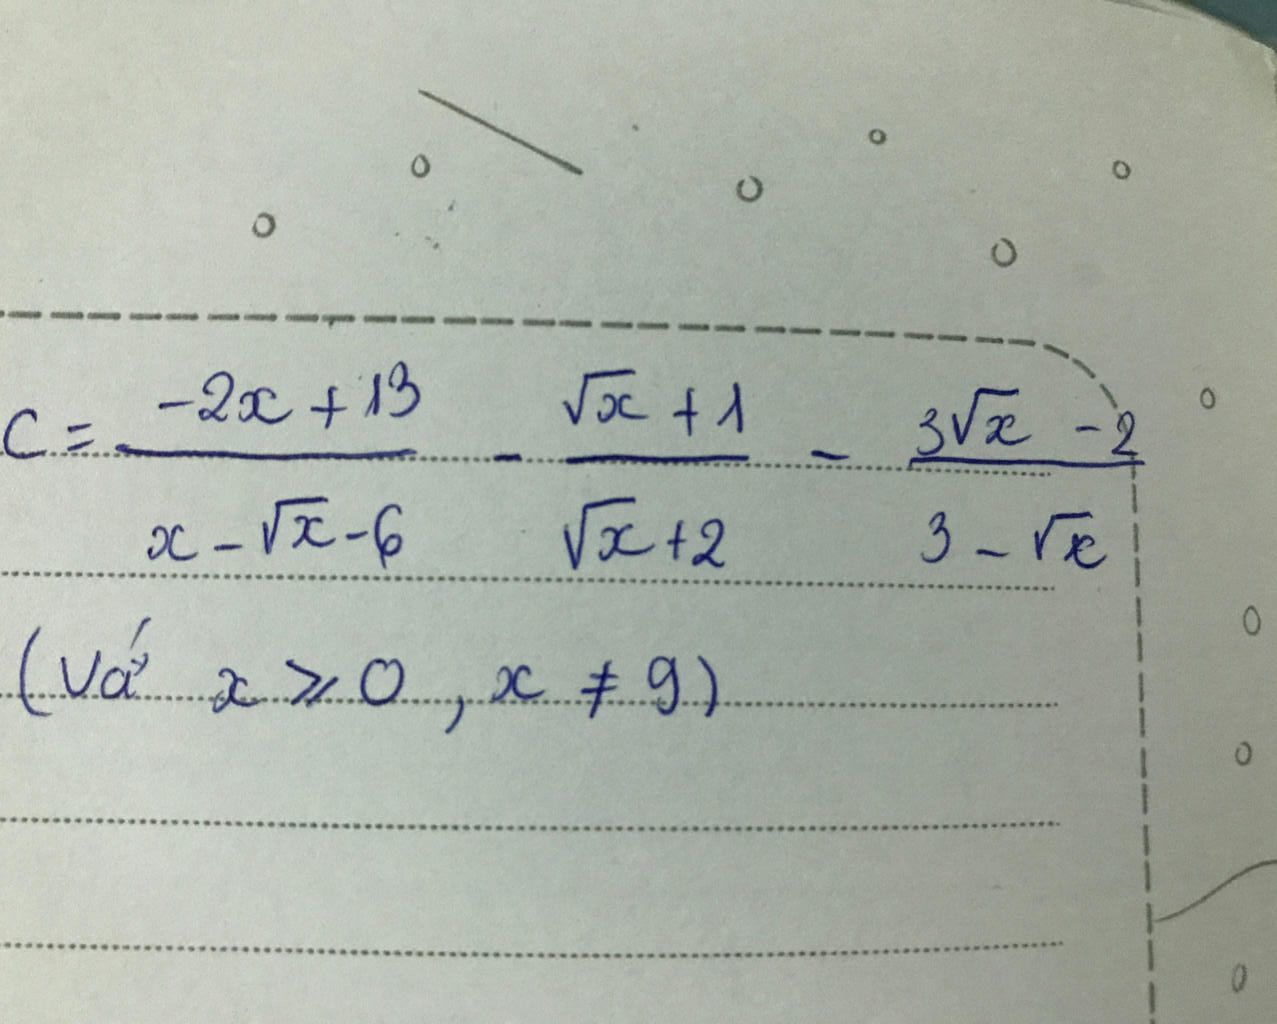 C = (-2x + 13)/(x - √x - 6) - (√x + 1)/(√x + 2) - (3√x - 2)/(3 - √x)
(Vớí x ⩾ 0, x ≠ 9)